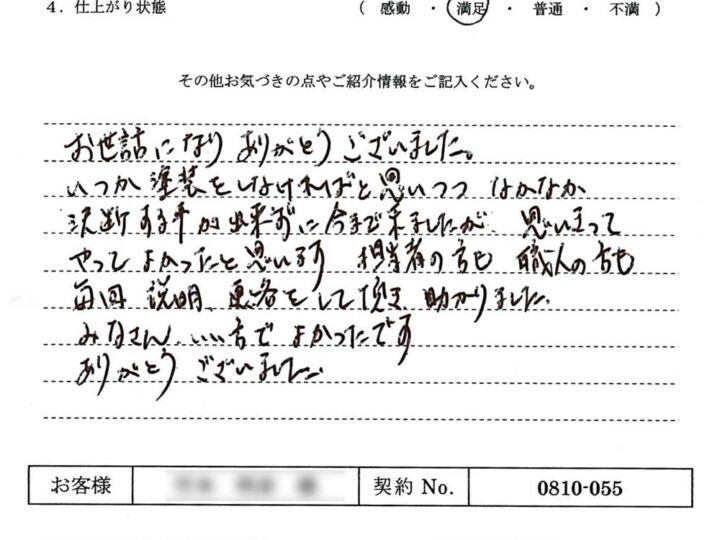 4. 仕上がり状態 ( 感動 ・ 満足 ・ 普通 ・ 不満 )
その他お気づきの点やご紹介情報をご記入ください。
お世話になり ありがとうございました。
いつか塗装をしなければと思いつつ なかなか
決断する事が出来ずに今まで来ましたが、思いきって
やってよかったと思います 担当者の方も 職人の方も
毎回 説明、連絡をして頂き 助かりました。
みなさん、いい方で よかったです
ありがとうございました
お客様 契約 No. 0810-055